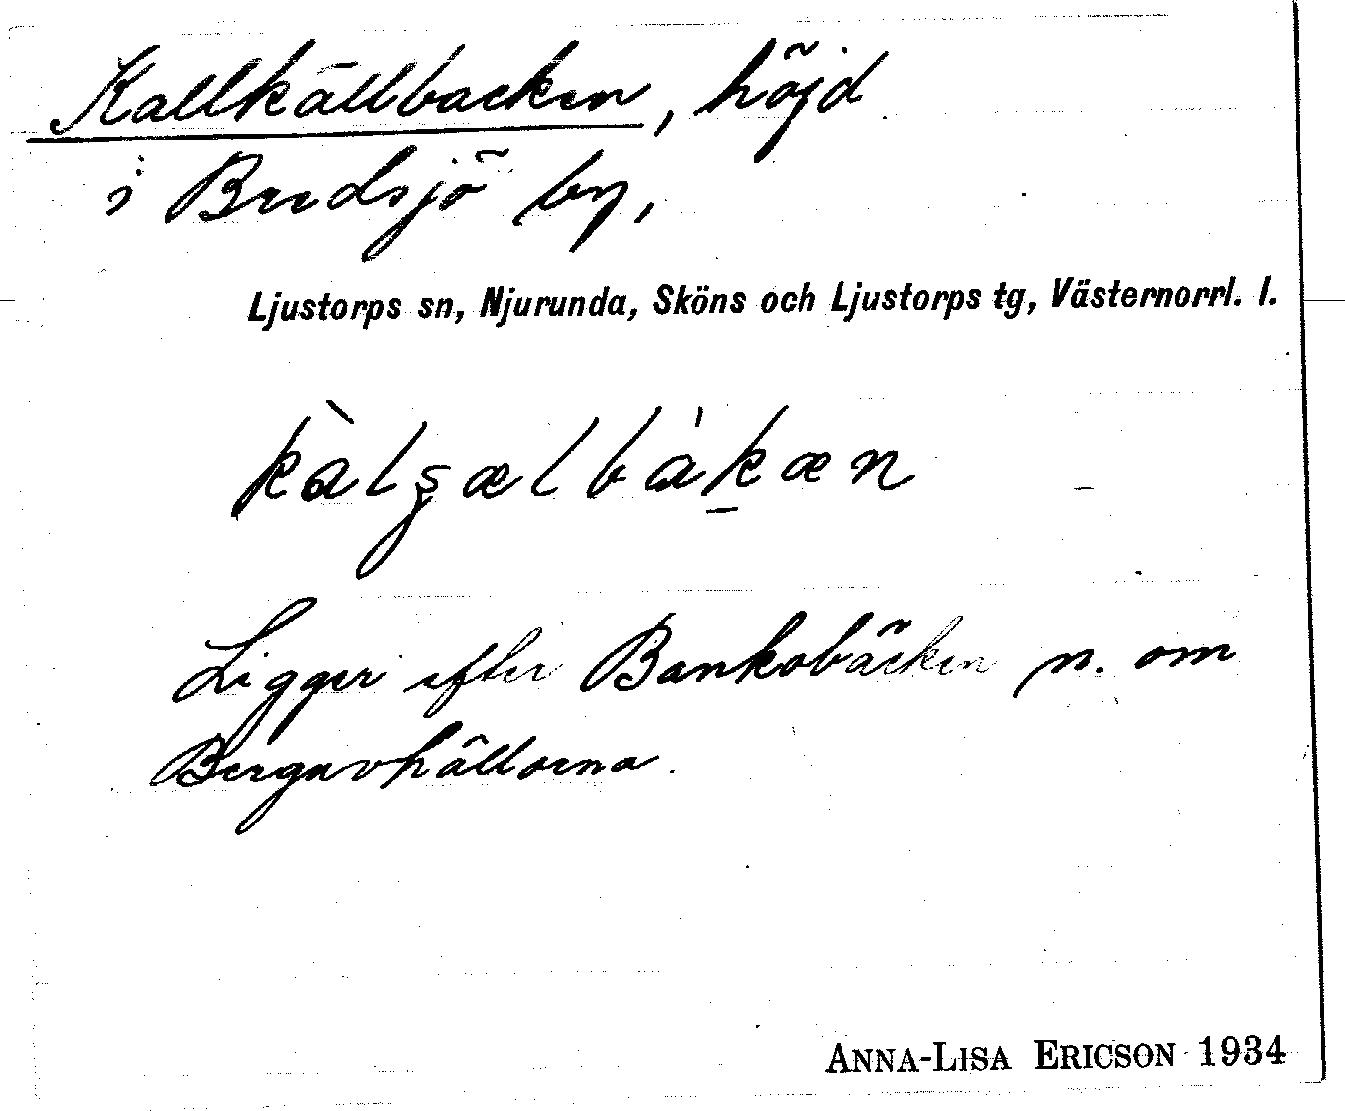 Kallkällbacken, höjd
i Bredsjö by,
Ljustorps sn, Njurunda, Sköns och Ljustorps tg, Västernorrl. l.
kàlʂælbàkæn
Ligger efter Bankobäcken n. om
Bergavhällorna.
ANNA-LISA ERICSON 1934